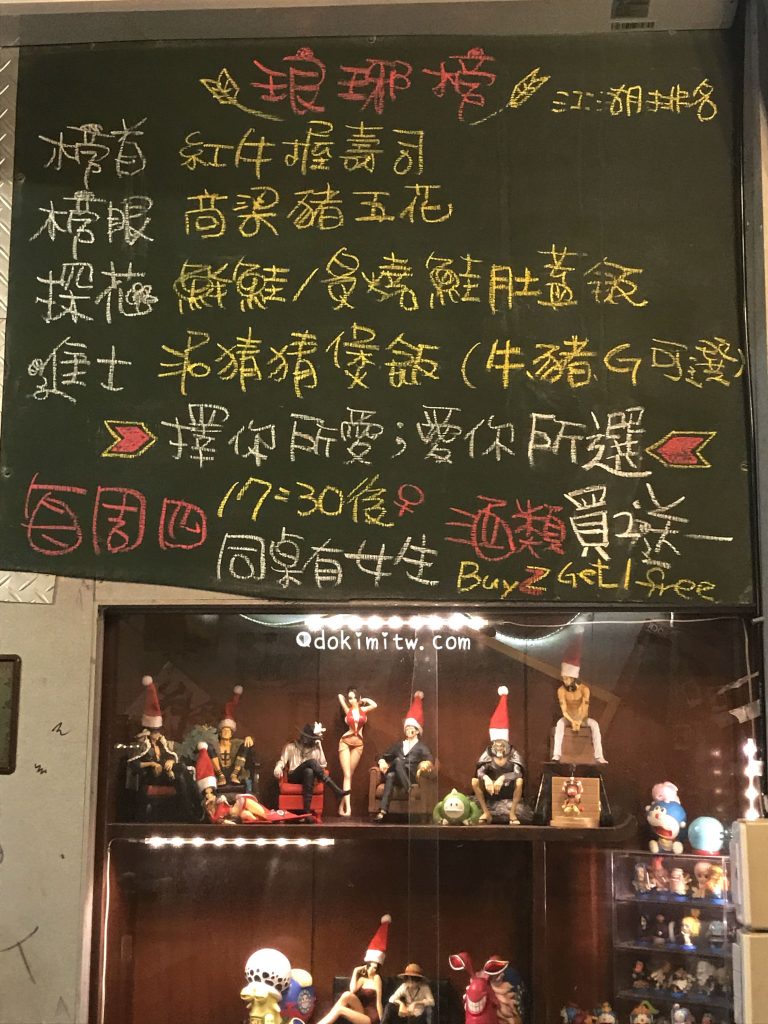 琅琊榜 江湖排名
榜首 紅牛握壽司
榜眼 高粱豬五花
探花 鮮鮭/炙燒鮭肚蓋飯
進士 猜猜煲飯(牛.豬.G可選)
擇你所愛;愛你所選
每周四 17:30後♀ 酒類 買2送一
同桌有女生 Buy 2 Get 1 free
dokimitw.com